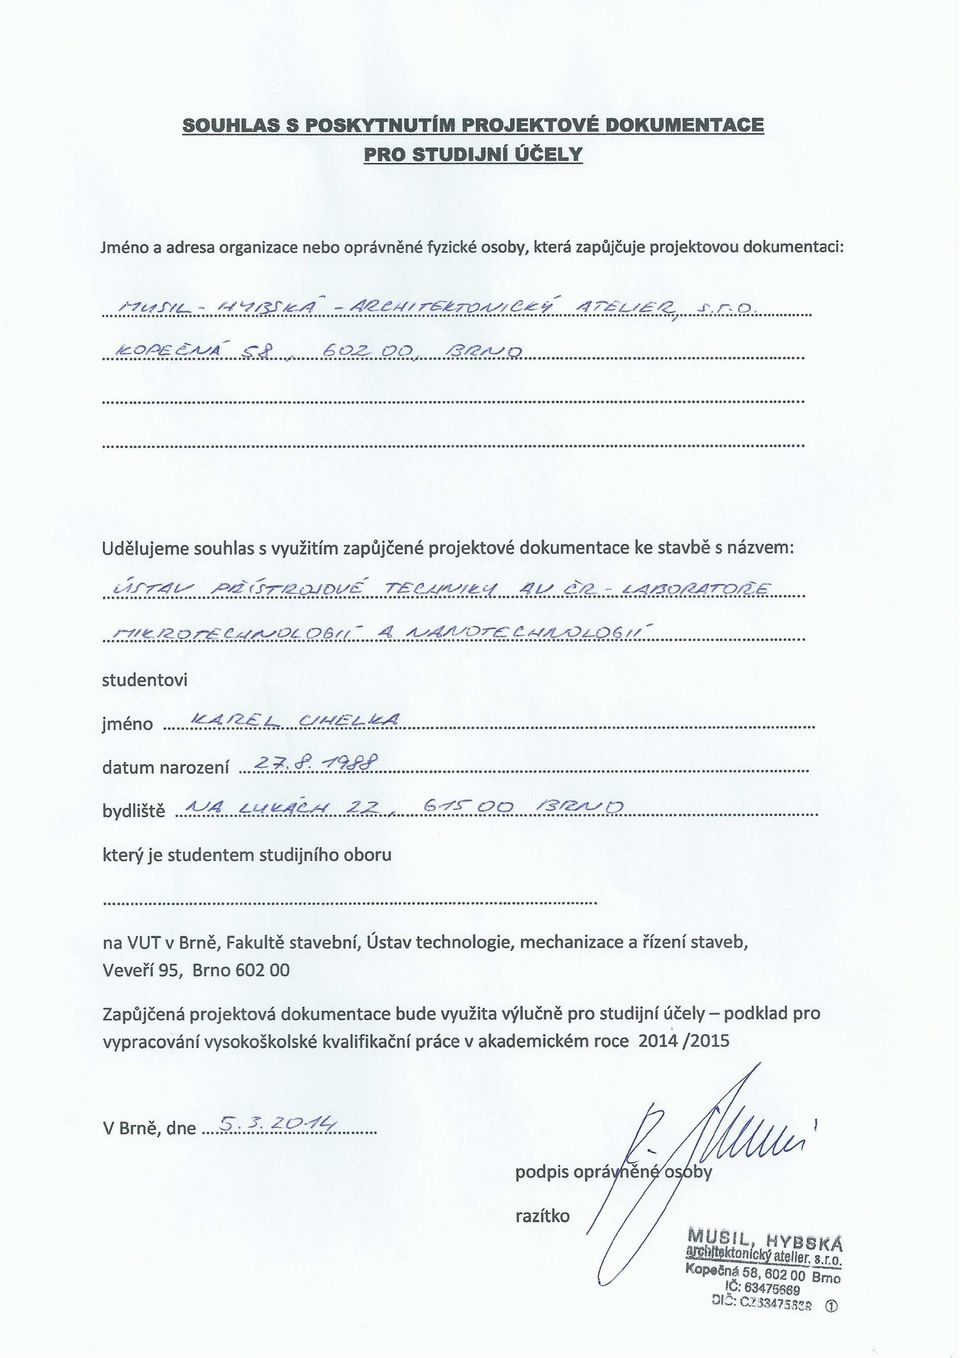 SOUHLAS S POSKYTNUTÍM PROJEKTOVÉ DOKUMENTACE
PRO STUDIJNÍ ÚČELY
Jméno a adresa organizace nebo oprávněné fyzické osoby, která zapůjčuje projektovou dokumentaci:
MUSIL - HYBSKÁ - ARCHITEKTONICKÝ ATELIER, s.r.o.
KOPEČNÁ 58, 602 00, BRNO
Udělujeme souhlas s využitím zapůjčené projektové dokumentace ke stavbě s názvem:
ÚSTAV PŘÍSTROJOVÉ TECHNIKY AV ČR - LABORATOŘE
MIKROTECHNOLOGIÍ A NANOTECHNOLOGIÍ
studentovi
jméno KAREL CIHELKA
datum narození 27. 8. 1988
bydliště NA LUKÁCH 22, 615 00 BRNO
který je studentem studijního oboru
na VUT v Brně, Fakultě stavební, Ústav technologie, mechanizace a řízení staveb,
Veveří 95, Brno 602 00
Zapůjčená projektová dokumentace bude využita výlučně pro studijní účely – podklad pro
vypracování vysokoškolské kvalifikační práce v akademickém roce 2014 /2015
V Brně, dne 5. 3. 2014
podpis oprávněné osoby
razítko
MUSIL, HYBSKÁ
architektonický atelier, s.r.o.
Kopečná 58, 602 00 Brno
IČ: 63475669
DIČ: ①